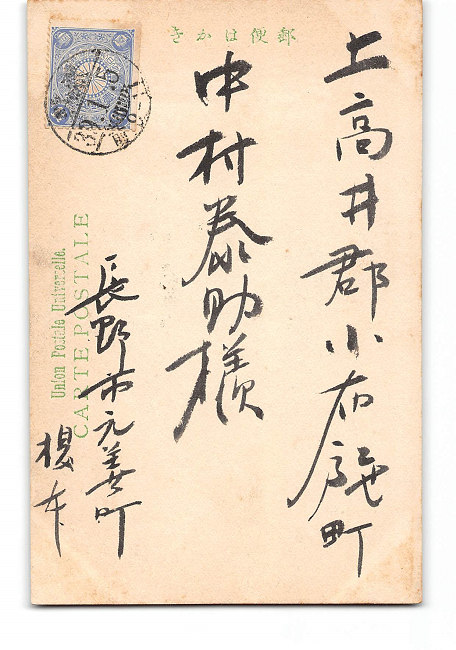 郵便はかき
上高井郡小布施町
中村泰助様
長野市元善町
榎本
Union Postale Universelle.
CARTE POSTALE